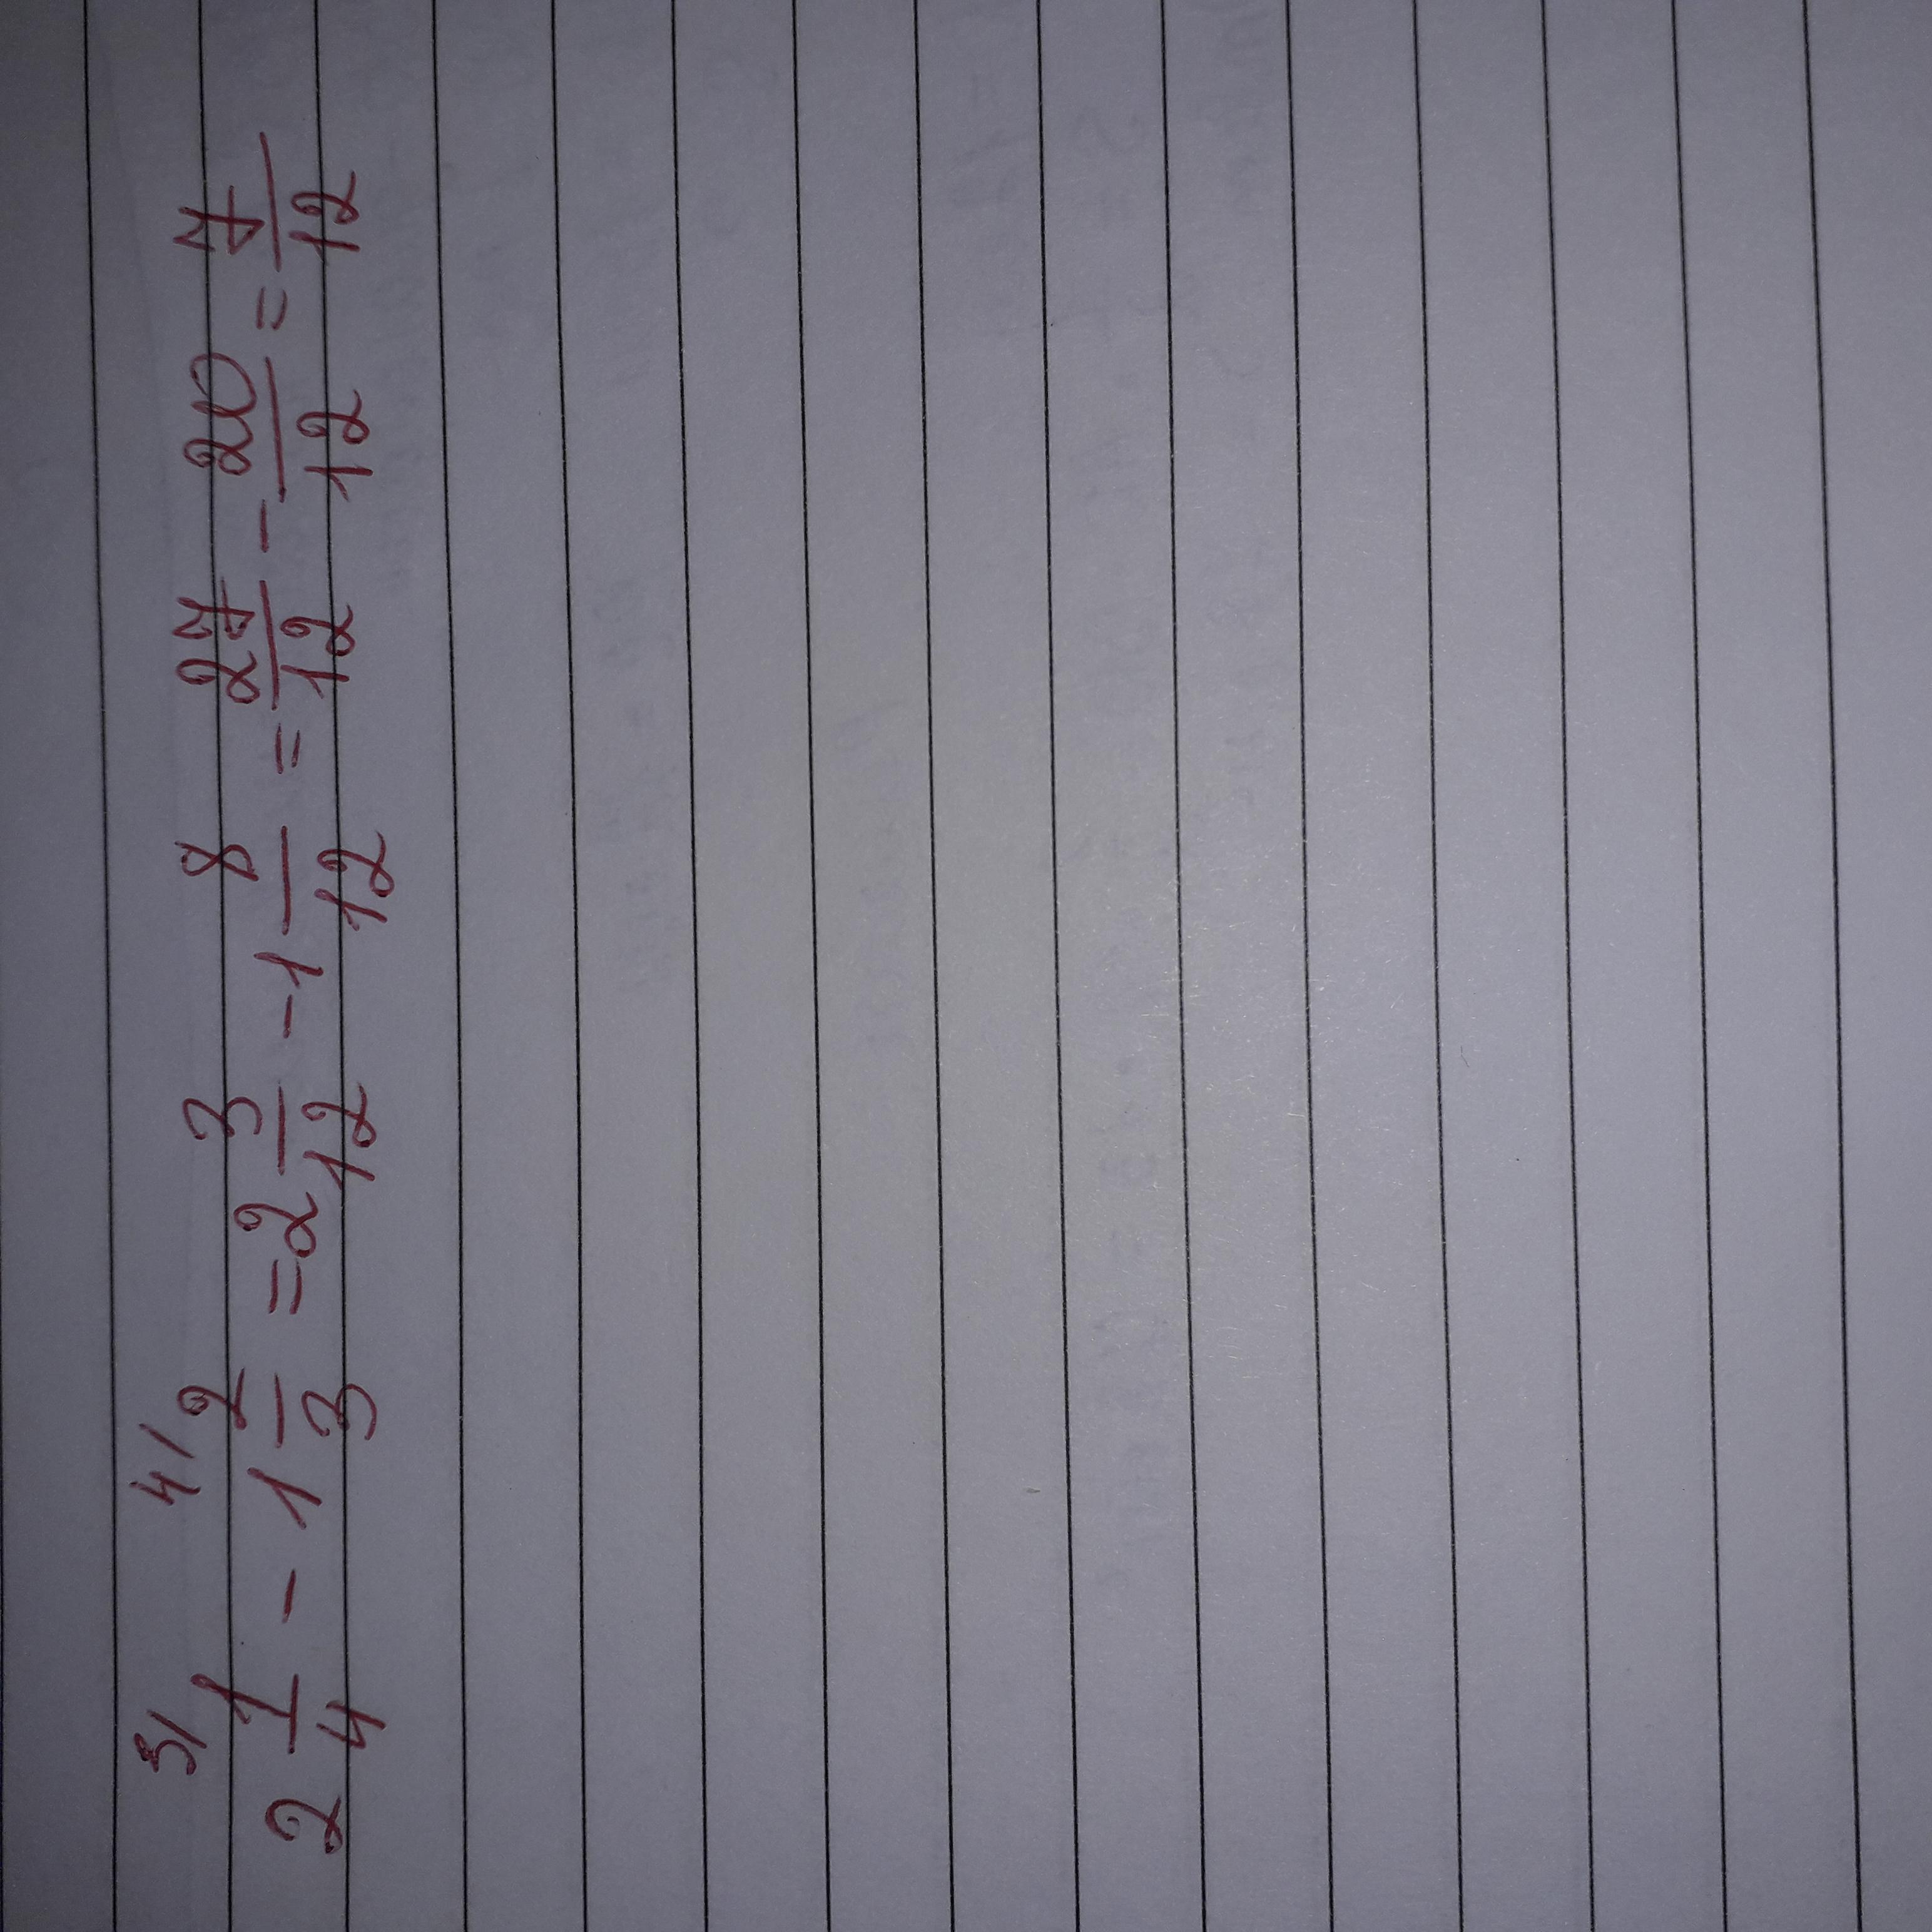 3/ 4/
2 1/4 - 1 2/3 = 2 3/12 - 1 8/12 = 27/12 - 20/12 = 7/12